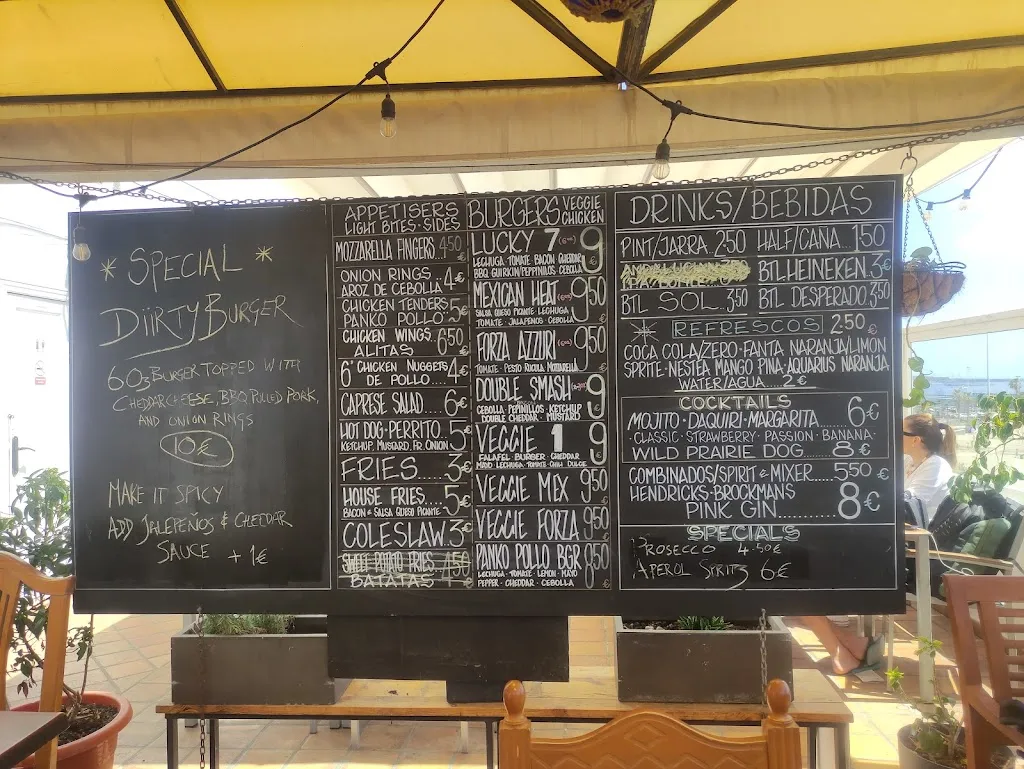 * SPECIAL *
DIIRTY BURGER
6OZ BURGER TOPPED WITH
CHEDDAR CHEESE, BBQ PULLED PORK,
AND ONION RINGS
10€
MAKE IT SPICY
ADD JALEPEÑOS & CHEDDAR
SAUCE +1€
APPETISERS
LIGHT BITES·SIDES
MOZZARELLA FINGERS 4.50€
ONION RINGS... 4€
AROZ DE CEBOLLA
CHICKEN TENDERS 5€
PANKO POLLO
CHICKEN WINGS 6.50€
ALITAS
6 CHICKEN NUGGETS 4€
DE POLLO
CAPRESE SALAD.... 6€
HOT DOG·PERRITO. 5€
KETCHUP, MUSTARD, FR. ONION
FRIES.... 3€
HOUSE FRIES.... 5€
BACON & SALSA QUESO PICANTE
COLESLAW. 3€
SWEET POTATO FRIES 4.50€
BATATAS
BURGERS VEGGIE
CHICKEN
LUCKY 7 9
LECHUGA·TOMATE BACON CHEDDAR
BBQ GUIRKIN/PEPPINILOS CEBOLLA
MEXICAN HEAT 9.50
SALSA QUESO PICANTE LECHUGA
TOMATE JALAPENOS CEBOLLA
FORZA AZZURI 9.50
TOMATE·PESTO RUCULA MOZZARELLA
DOUBLE SMASH 9
CEBOLLA PEPINILLOS KETCHUP
DOUBLE CHEDDAR·MUSTARD
VEGGIE 1 9
FALAFEL BURGER·CHEDDAR
LECHUGA·TOMATE·CHILI DULCE
VEGGIE MEX 9.50
VEGGIE FORZA 9.50
PANKO POLLO BGR 8.50
LECHUGA·TOMATE·LEMON·MAYO
PEPPER·CHEDDAR·CEBOLLA
DRINKS/BEBIDAS
PINT/JARRA 2.50 HALF/CANA... 1.50
BTL.HEINEKEN.3€
BTL SOL.3.50 BTL DESPERADO.3.50
REFRESCOS 2.50€
COCA COLA/ZERO·FANTA NARANJA/LIMON
SPRITE·NESTEA MANGO PINA·AQUARIUS NARANJA
WATER/AGUA....2€
COCKTAILS
MOJITO·DAQUIRI·MARGARITA........ 6€
·CLASSIC·STRAWBERRY·PASSION·BANANA·
WILD PRAIRIE DOG..... 8€
COMBINADOS/SPIRIT & MIXER..... 5.50€
HENDRICKS·BROCKMANS
PINK GIN.......... 8€
SPECIALS
PROSECCO 4.50€
APEROL SPRITZ 6€